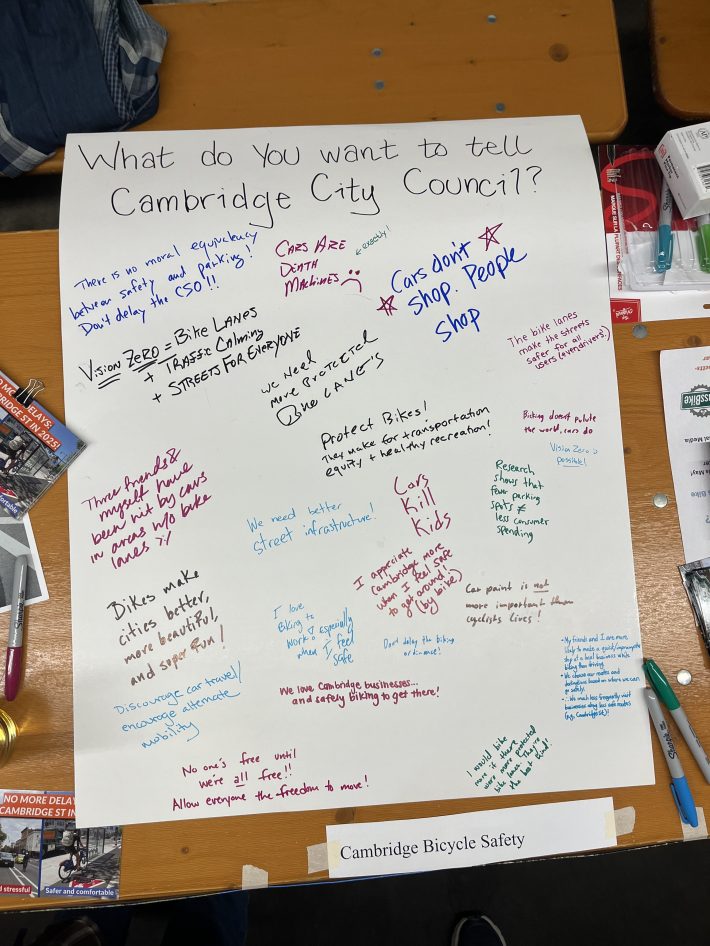 What do you want to tell
Cambridge City Council?
There is no moral equivalency
between safety and parking!
Don't delay the CSO!!!
CARS ARE
DEATH
MACHINES
← exactly!
Cars don't
shop. People
shop
VISION ZERO = BIKE LANES
+ TRAFFIC CALMING
+ STREETS FOR EVERYONE
We Need
more Protected
Bike LANE'S
The bike lanes
make the streets
safer for all
users (even drivers!)
Protect Bikes!
They make for transportation
equity + healthy recreation!
Biking doesn't pollute
the world, cars do
Vision Zero is
possible!
Three friends &
myself have
been hit by cars
in areas w/o bike
lanes
We need better
street infrastructure!
Cars
Kill
Kids
Research
shows that
fewer parking
spots ≠
less consumer
spending
I appreciate
Cambridge more
when I feel safe
to get around!
(by bike)
Car paint is not
more important than
cyclists lives!
Bikes make
cities better,
more beautiful,
and super fun!
I love
Biking to
work & especially
when I feel
safe
Don't delay the biking
ordinance!
- My friends and I are more
likely to make a quick/impromptu
stop at a local business while
biking than driving.
- We choose our routes and
destinations based on where we can
go safely!
- ∴ We much less frequently visit
businesses along less safe routes
(e.g. Cambridge St)!
Discourage car travel/
encourage alternate
mobility
We love Cambridge businesses...
and safely biking to get there!
No one's free until
we're all free!!
Allow everyone the freedom to move!
I would bike
more if there
were more protected
bike lanes. They're
the best kind!
Cambridge Bicycle Safety
NO MORE DELAYS:
CAMBRIDGE ST IN 2025!
NO MORE DELAY
CAMBRIDGE ST IN
stressful
Safer and comfortable
Sharpie
Sharpie